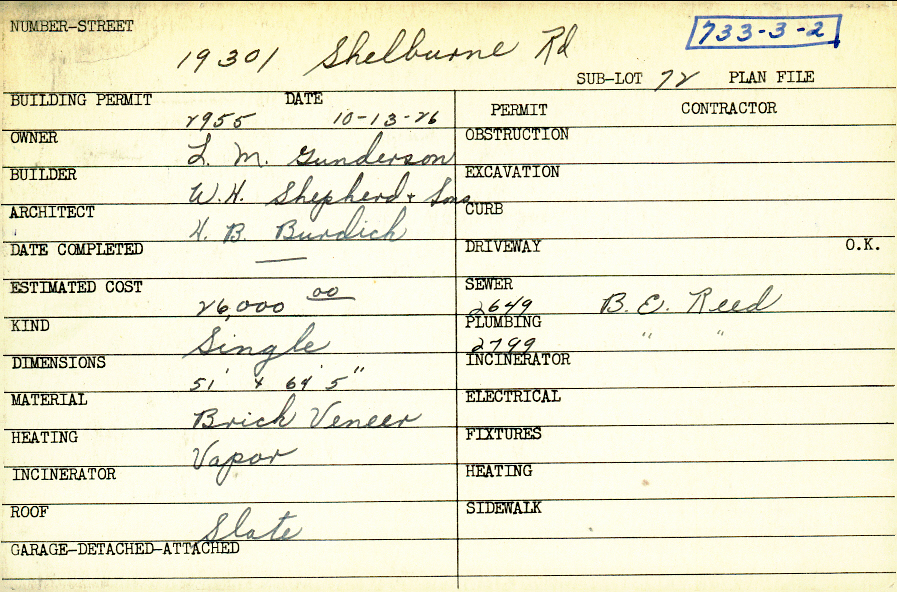 NUMBER-STREET
19301 Shelburne Rd
733-3-2
SUB-LOT 72 PLAN FILE
BUILDING PERMIT 2955 DATE 10-13-26
OWNER L. M. Gunderson
BUILDER W. H. Shepherd + Sons
ARCHITECT H. B. Burdick
DATE COMPLETED —
ESTIMATED COST 26,000 00
KIND Single
DIMENSIONS 51' x 69' 5"
MATERIAL Brick Veneer
HEATING Vapor
INCINERATOR
ROOF Slate
GARAGE-DETACHED-ATTACHED
PERMIT CONTRACTOR
OBSTRUCTION
EXCAVATION
CURB
DRIVEWAY O.K.
SEWER 2649 B. E. Reed
PLUMBING 2799 " "
INCINERATOR
ELECTRICAL
FIXTURES
HEATING
SIDEWALK